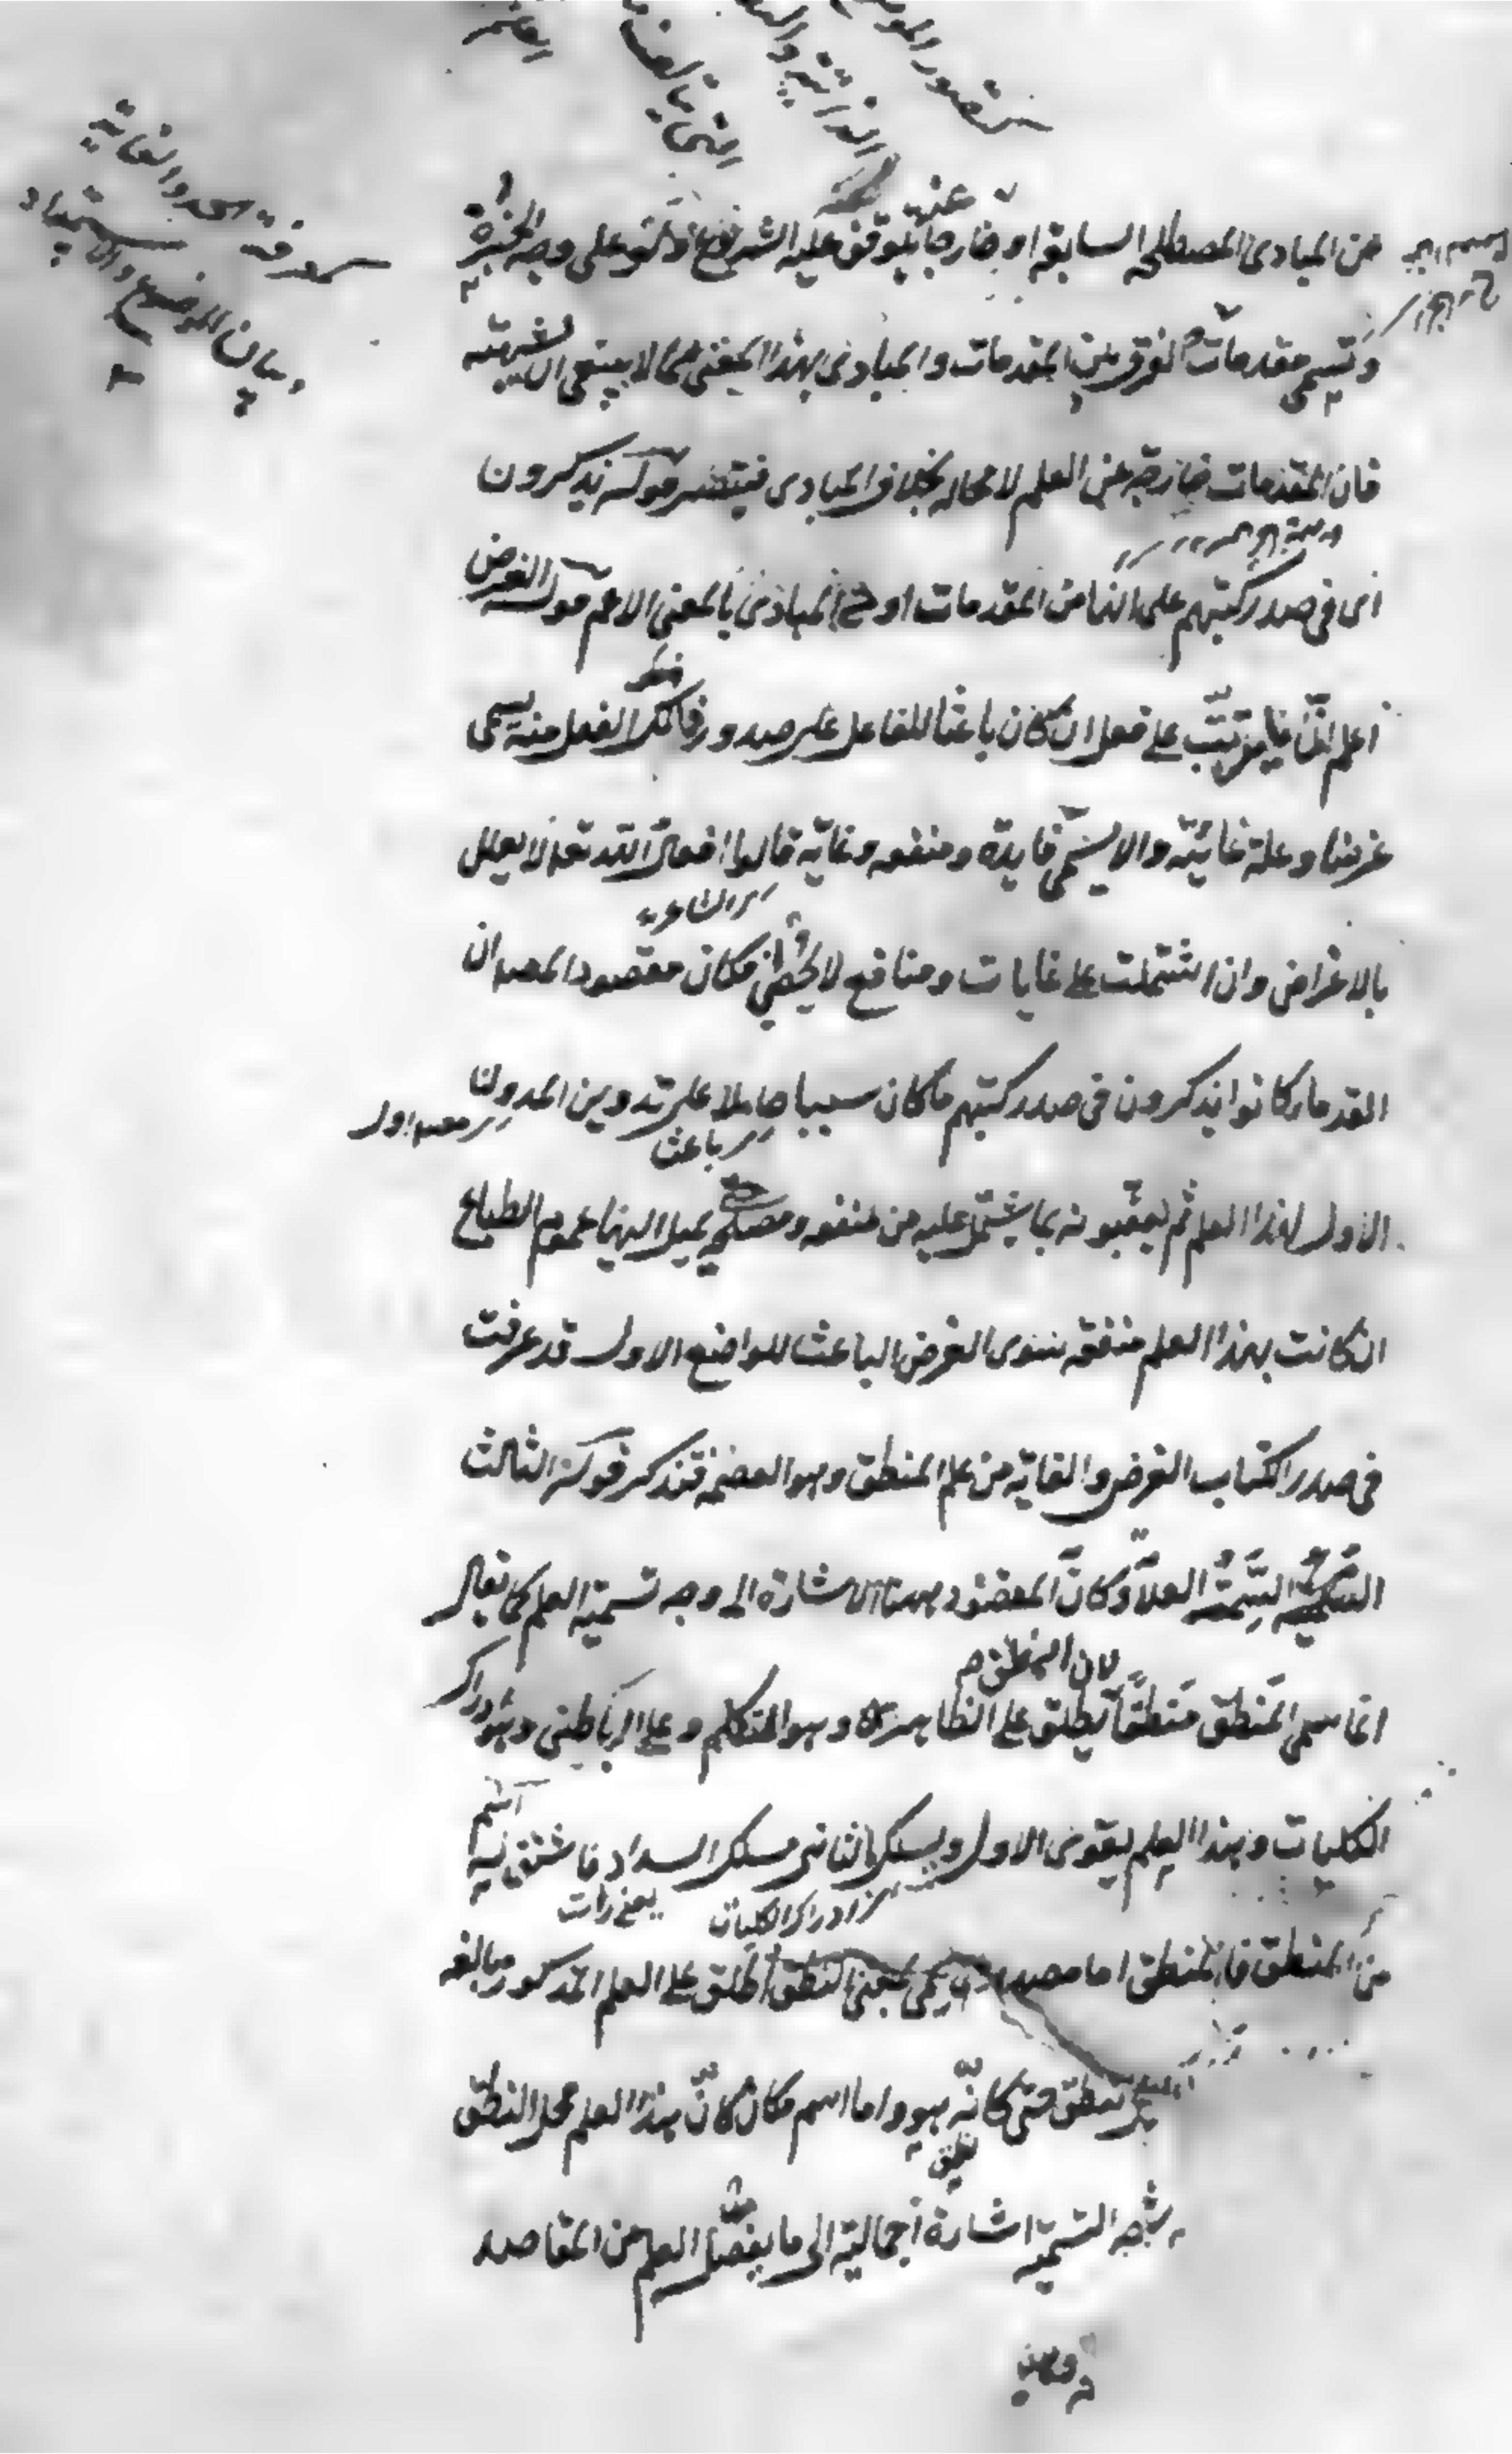 من المبادى المصطلحه السابقه او خارجا عنه يتوقف عليه الشروع ولو على وجه الخبرة
وتسمى مقدمات والفرق بين المقدمات والمبادى بهذا المعنى مما لا ينبغى ان يشتبه
فان المقدمات خارجة عن العلم لا محاله بخلاف المبادى فتبصر قوله يذكرون
اى فى صدر كتبهم على انها من المقدمات او من المبادى بالمعنى الاعم قوله الغرض
اعلم ان ما يترتب على فعل ان كان باعثا للفاعل على صدور ذلك الفعل منه يسمى
غرضا وعلة غائية والا يسمى فايدة ومنفعه وغاية قالوا افعال الله تعالى لا يعلل
بالاغراض وان اشتملت على غايات ومنافع لا يحصى فكان مقصود المصـ ان
القدماء كانوا يذكرون فى صدر كتبهم ما كان سببا حاملا على تدوين المدون
باعث
الاول لهذا العلم ثم يعقبونه بما يشتمل عليه من منفعه ومصلحة يميل اليها عموم الطبايع
ان كانت بهذا العلم منفعه سوى الغرض الباعث للواضع الاول قد عرفت
فى صدر الكتاب الغرض والغاية من علم المنطق وهو العصمة فتذكر قوله الثالث
التسمية السمة العلامة وكان المقصود ههنا الاشارة الى وجه تسمية العلم كما يقال
لان المنطق
انما سمى المنطق منطقا يطلق على الظاهرى وهو التكلم وعلى الباطنى وهو ادراك
الكليات وهذا العلم يقوى الاول ويسلك بالثانى مسلك السداد فاشتق له اسم
ادراك الكليات
من المنطق فالمنطق اما مصدر ميمى بمعنى النطق اطلق على العلم المذكور مبالغه
نطق حتى كانه هو واما اسم مكان كان هذا العلم محل النطق
التسمية اشارة اجمالية الى ما يفصل العلم من المقاصد
معرفة الحد والغاية
وبيان الموضوع والاستمداد